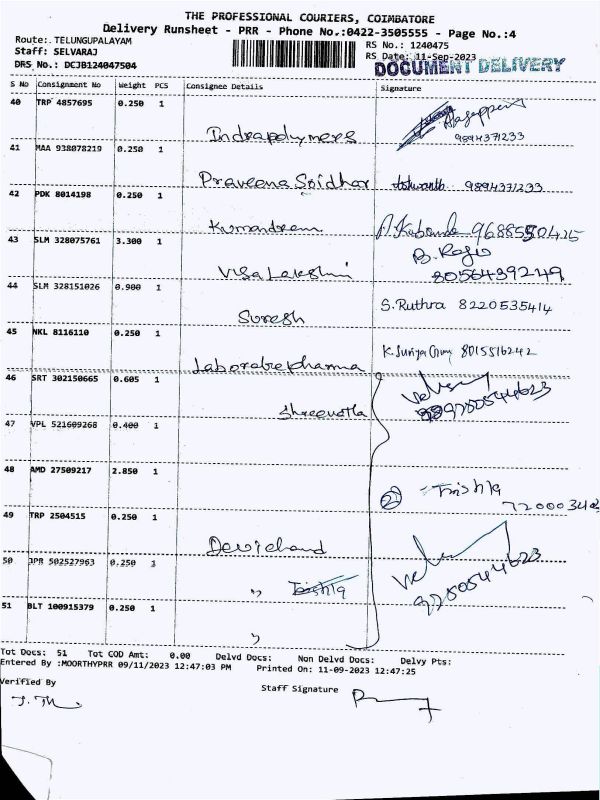 THE PROFESSIONAL COURIERS, COIMBATORE
Delivery Runsheet - PRR - Phone No.:0422-3505555 - Page No.:4
Route:. TELUNGUPALAYAM
RS No.: 1240475
Staff: SELVARAJ
RS Date: 11-Sep-2023
DRS No.: DCJB124047504
DOCUMENT DELIVERY
S No Consignment No Weight PCS Consignee Details Signature
40 TRP 4857695 0.250 1
Indrapolymers 9894371233
41 MAA 938078219 0.250 1
Praveena Sridhar Ashwanth 9894371233
42 PDK 8014198 0.250 1
43 SLM 328075761 3.300 1
8056439249
44 SLM 328151026 0.900 1
Suresh S.Ruthra 8220535414
45 NKL 8116110 0.250 1
8015516242
46 SRT 302150665 0.605 1
9750544623
47 VPL 521609268 0.400 1
48 AMD 27509217 2.850 1
Trishla
49 TRP 2504515 0.250 1
Devichand
50 JPR 502527963 0.250 1
" Trishla
51 BLT 100915379 0.250 1
"
Tot Docs: 51 Tot COD Amt: 0.00 Delvd Docs: Non Delvd Docs: Delvy Pts:
Entered By :MOORTHYPRR 09/11/2023 12:47:03 PM Printed On: 11-09-2023 12:47:25
Verified By
Staff Signature